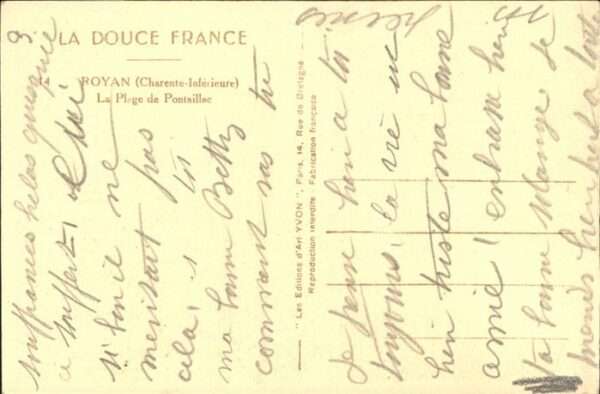 LA DOUCE FRANCE
ROYAN (Charente-Inférieure)
La Plage de Pontaillac
"Les Editions d'Art YVON", Paris, 14, Rue de Bretagne
Reproduction interdite - Fabrication française
3
souffrances helas
a souffert, lui
si bon il ne
meritait pas
cela,
ma bonne Betty
comment vas tu
Je pense bien a toi
toujours, la vie est
bien triste ma bonne
amie!
ta bonne
bien